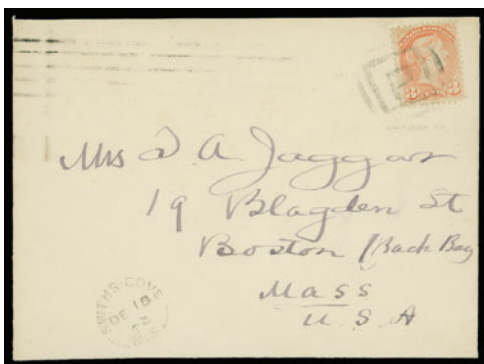 3 CENTS 3
Mrs T A Jaggar
19 Blagden St
Boston (Back Bay
Mass
U.S.A
SMITHS COVE
DE 18
93
N.S.